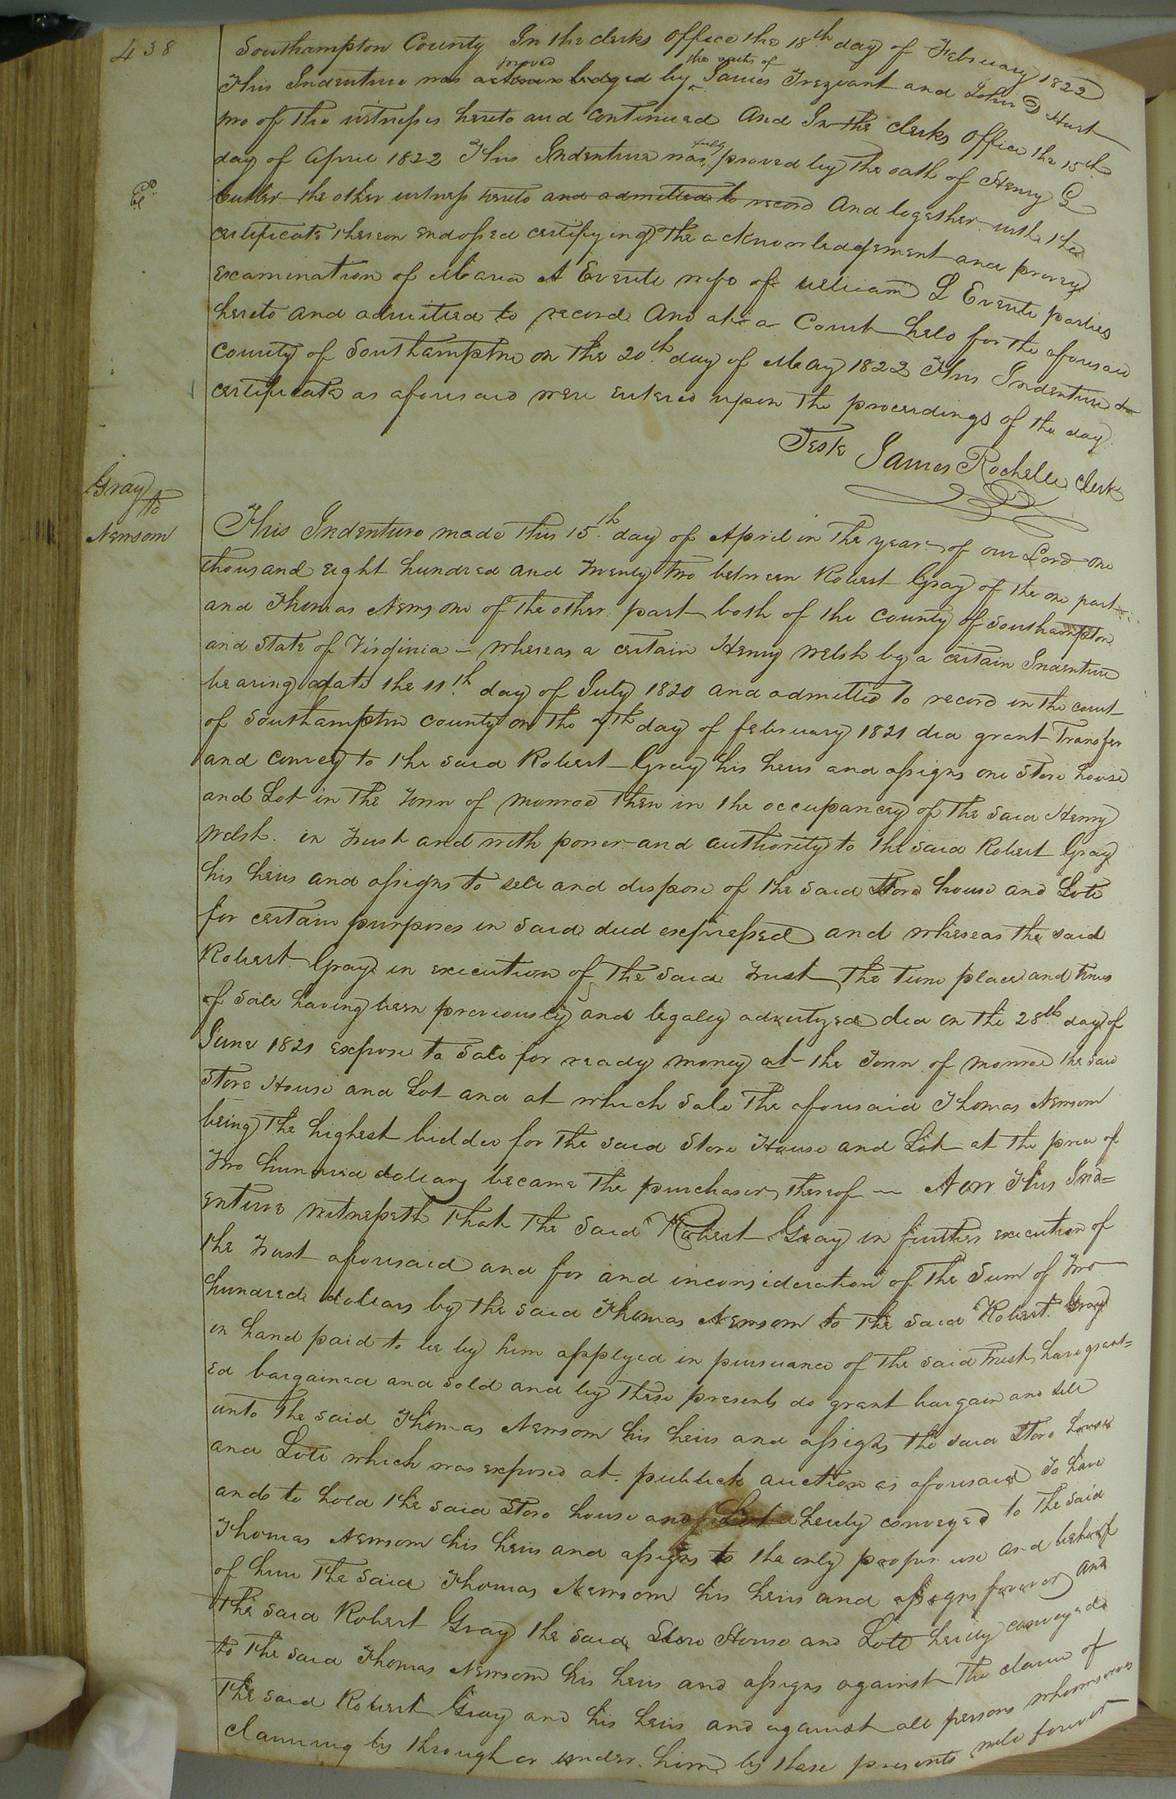 438
Southampton County In the clerks office the 18th day of February 1822
This Indenture was acknowledged proved by the oaths of James Trezvant and John D Hart
two of the witnesses hereto and continued And In the clerks office the 15th
day of April 1822 This Indenture was fully proved by the oath of Henry
Butler the other witness hereto and admitted to record And together with the
certificate thereon endorsed certifying the acknowledgement and privey
examination of Maria A Everitt wife of William L Everitt parties
hereto and admitted to record And at a Court held for the aforesaid
County of Southampton on the 20th day of May 1822 This Indenture &
certificate as aforesaid were entered upon the proceedings of the day
Teste James Rochelle Clerk
Gray
to
Newsom
This Indenture made this 15th day of April in the year of our Lord one
thousand eight hundred and Twenty two between Robert Gray of the one part
and Thomas Newsom of the other part both of the County of Southampton
and State of Virginia – whereas a certain Henry Welsh by a certain Indenture
bearing date the 11th day of July 1820 and admitted to record in the court
of Southampton County on the 7th day of february 1821 did grant Transfer
and convey to the said Robert Gray his heirs and assigns one Store house
and Lot in the Town of Monroe then in the occupancy of the said Henry
Welsh. in Trust and with power and authority to the said Robert Gray
his heirs and assigns to sell and dispose of the said Store house and Lott
for certain purposes in said deed expressed and whereas the said
Robert Gray in execution of the said Trust the time place and terms
of sale having been previously and legaly advertized did on the 28th day of
June 1821 expose to sale for ready money at the Town of monroe the said
Store House and Lot and at which sale the aforesaid Thomas Newsom
being the highest bidder for the said Store House and Lot at the price of
Two hundred dollars became the purchaser thereof — Now This Ind=
enture witnesseth that the said Robert Gray in further execution of
the Trust aforesaid and for and inconsideration of the Sum of Two
hundred dollars by the said Thomas Newsom to the said Robert Gray
in hand paid to be by him applyed in pursuance of the said Trust have grant=
ed bargained and sold and by these presents do grant bargain and sell
unto the said Thomas Newsom his heirs and assigns the said Store house
and Lott which was exposed at publick auction as aforesaid To have
and to hold the said Store house and Lot hereby conveyed to the said
Thomas Newsom his heirs and assigns to the only proper use and behoof
of him the said Thomas Newsom his heirs and assigns forever And
the said Robert Gray the said Store House and Lott hereby conveyed
to the said Thomas Newsom his heirs and assigns against the claim of
the said Robert Gray and his heirs and against all persons whomsoever
claiming by through or under him by these presents will forever